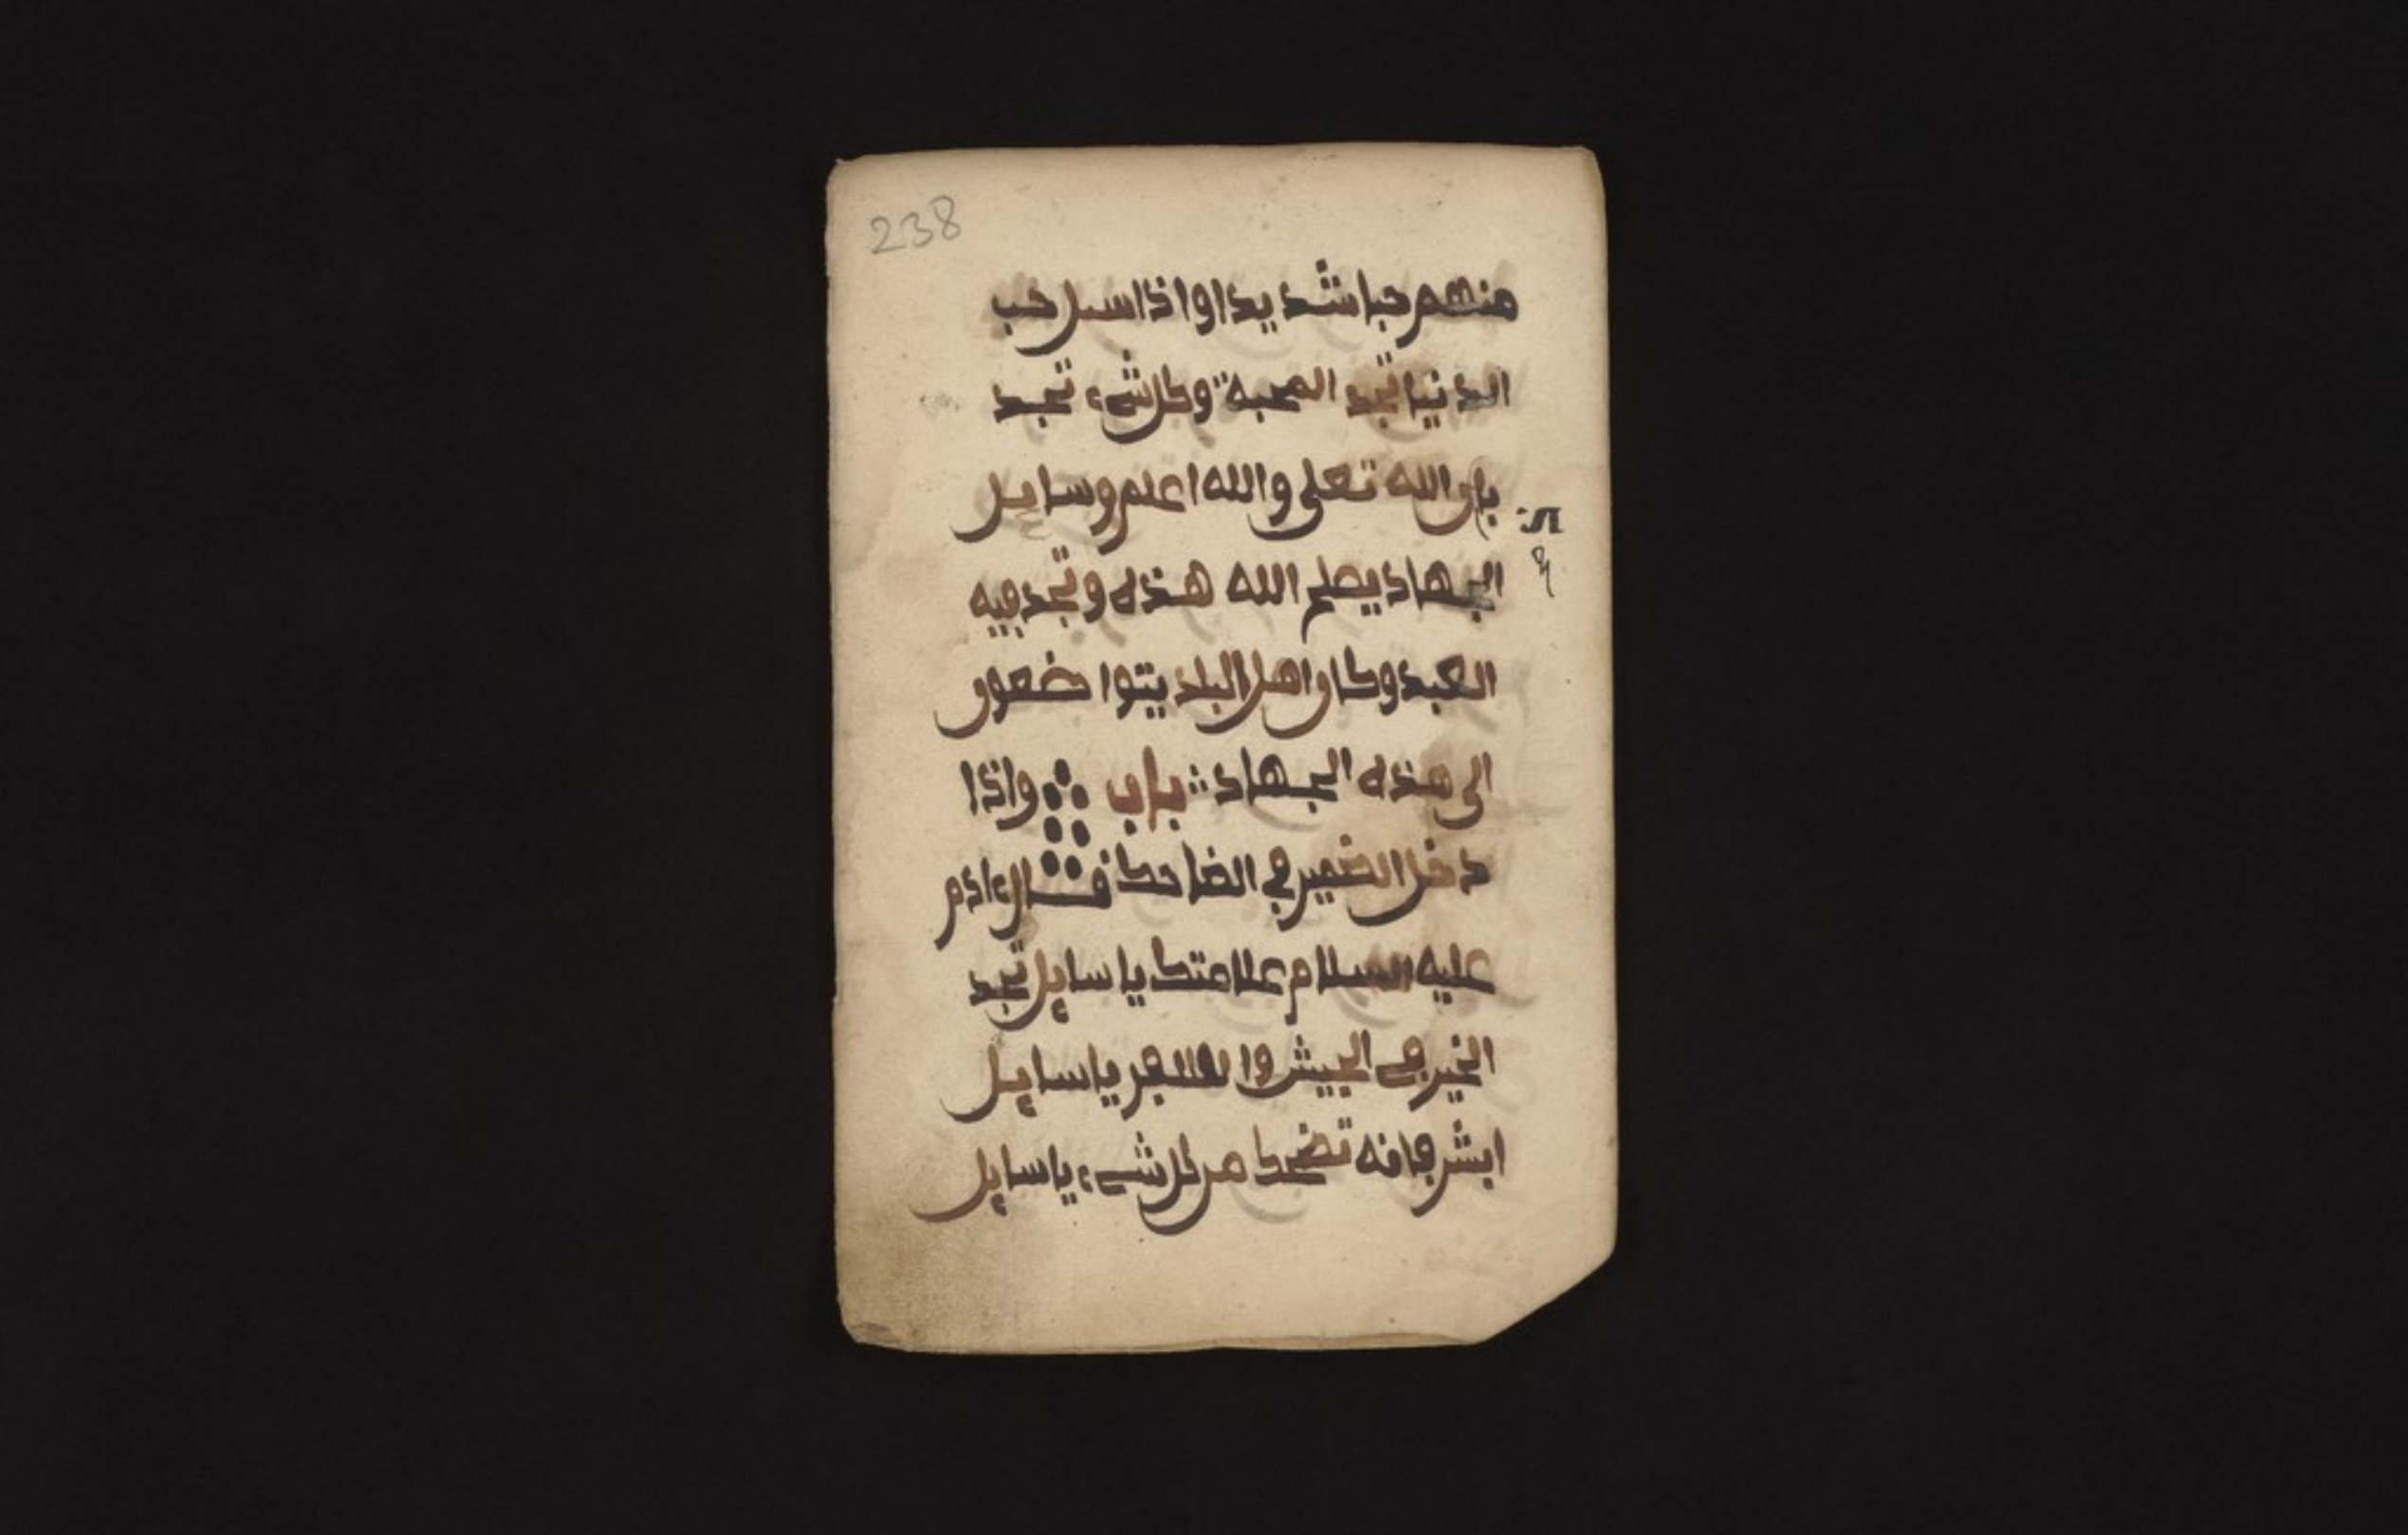 238
منهم حبا شديدا واذا سىل حب
الدنيا تجد المحبة وكل شيء تجد
باذن الله تعلى والله اعلم وسايل
الجهاد يصلح الله هذه وتجد فيه
العبد وكان اهل البلد يتوا ضعون
الى هذه الجهاد باب واذا
دخل الضمير في الضاحك فقال ءادم
عليه السلام علامتك يا سايل تجد
الخير في الجيش وا لسفر يا سايل
ابشر فانه تضحك من كل شيء يا سايل